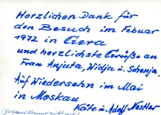 Herzlichen Dank für
den Besuch im Febuar
1972 in Gera
und herzlichste Grüße an
Frau Anjuta, Widja u. Schenja
Auf Wiedersehn im Mai
in Moskau
Käte u. Adolf